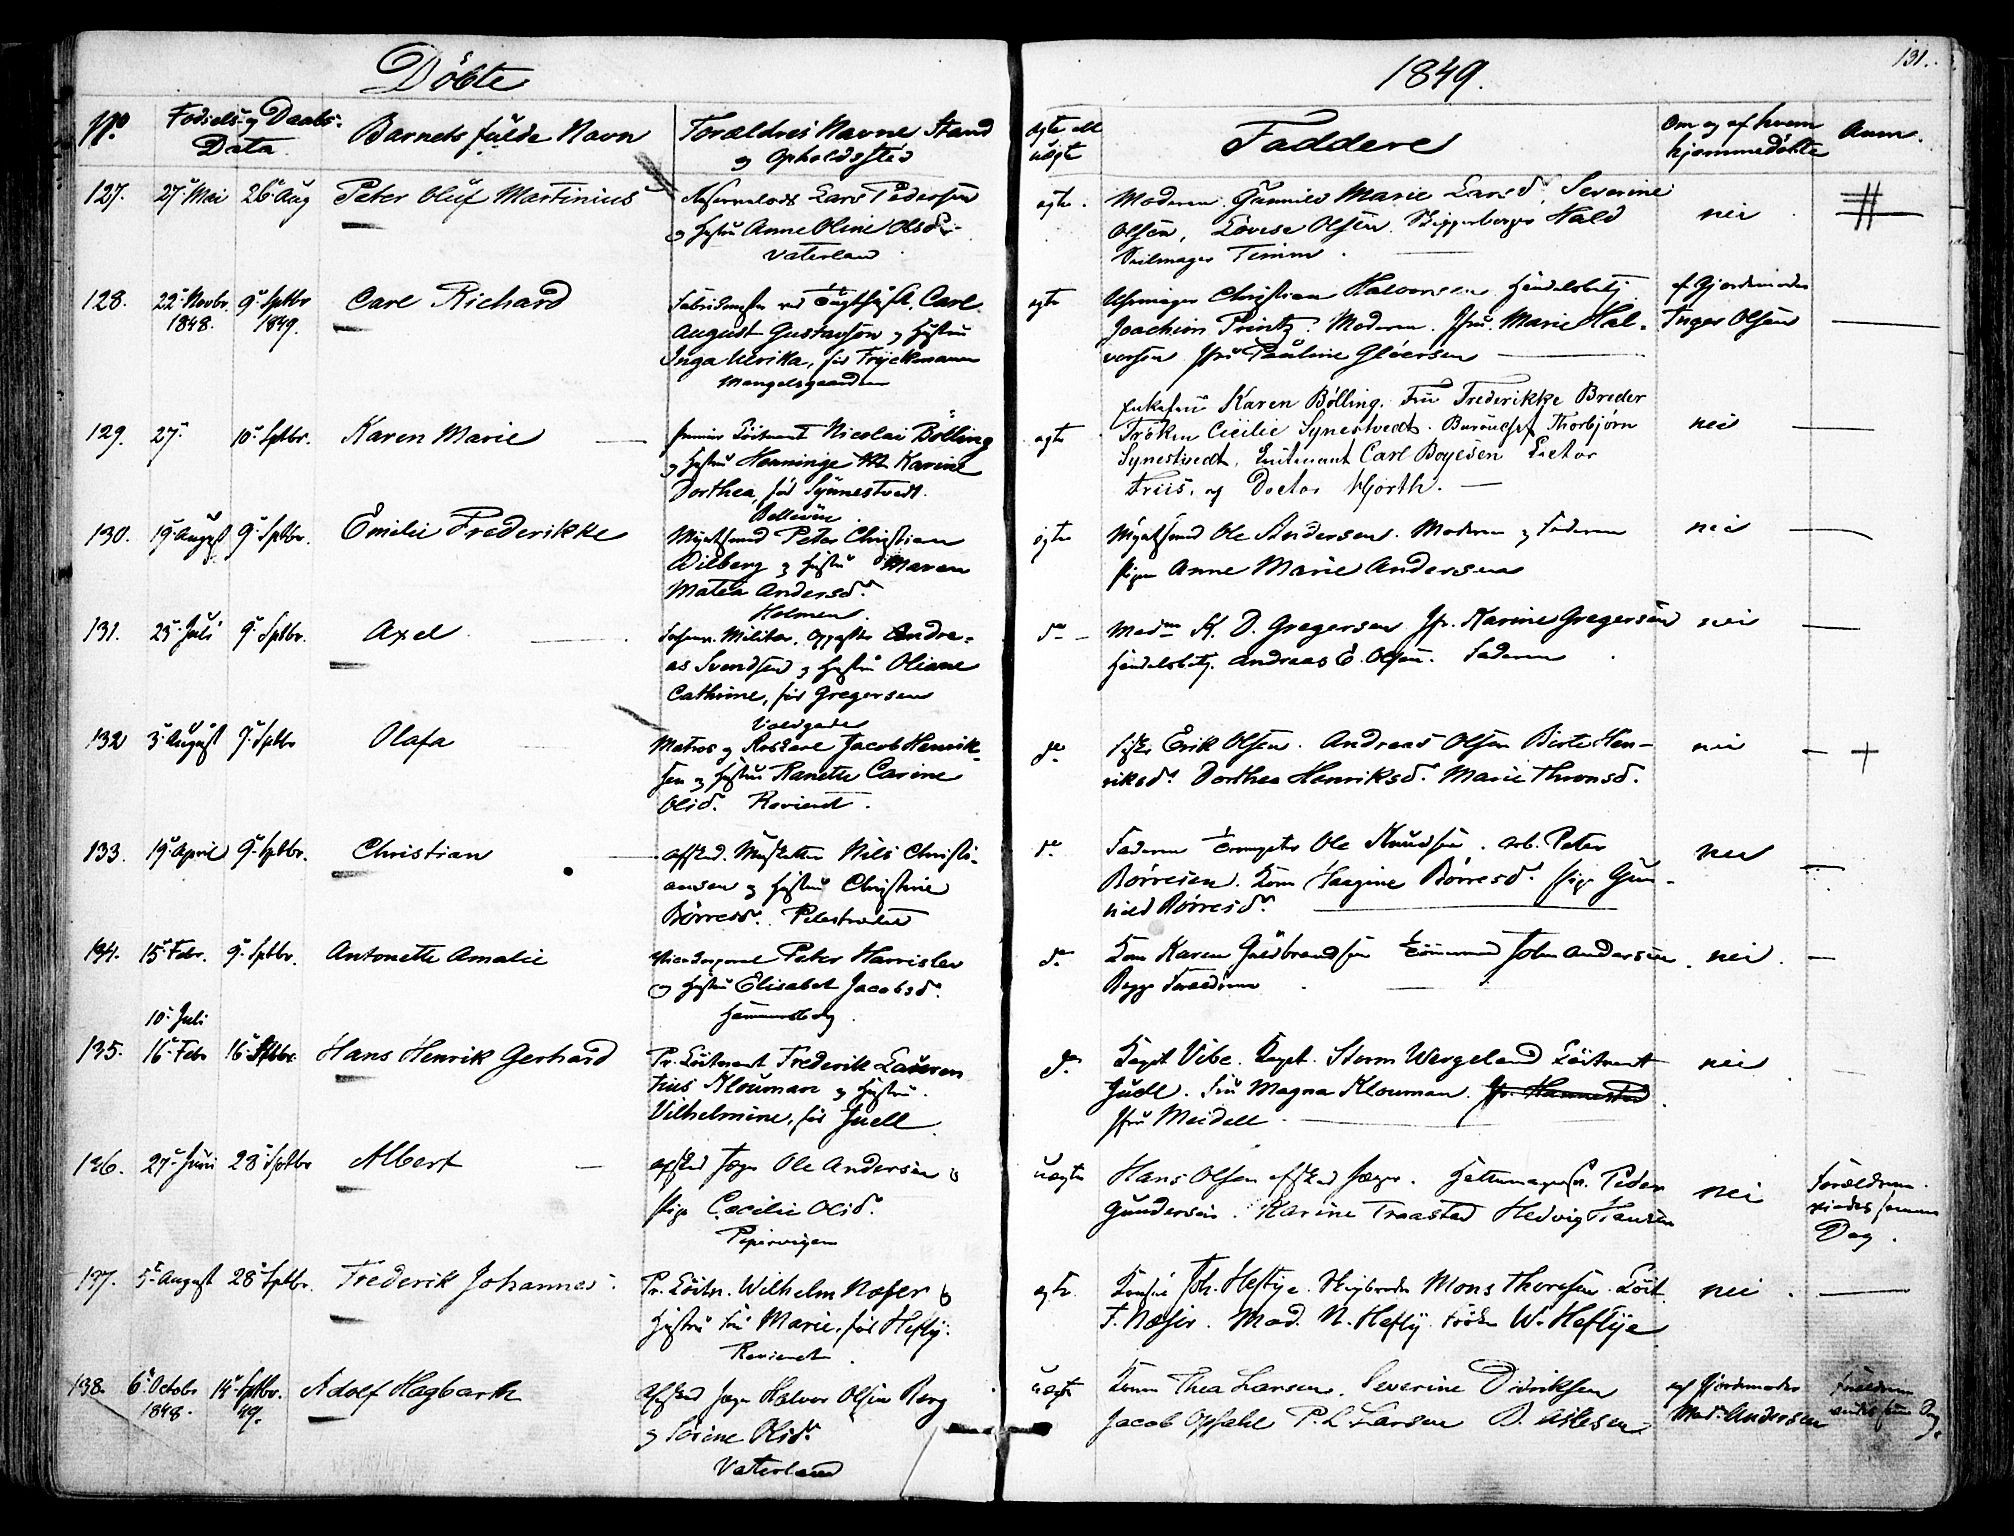 Döbte
1849.
131.
No
Födsels- og Daabs-
Data
Barnets fulde Navn
Forældres Navne Stand
og Opholdssted
ægte ell
uægte
Faddere
Om og af hvem
hjemmedöbte
Anm.
127. 27. Mai 26. Aug Peter Oluf Martinius
Lars Pedersen
og Hustru Anne Oline Olsd.
Vaterland
ægte.
Moderen Gunnild Marie Larsd. Severine
Olsen, Lovise Olsen. Skipperborger Hald
Seilmager Timm.
nei
128. 22. Novbr. 9. Sptbr Carl Richard
1848. 1849.
ved Tugthuset. Carl
August Gustavsen og Hustru
Inga Ulrika, föd Tryckmann
Mangelsgaarden
ægte
Uhrmager Christian Halvorsen Handelsbetj
Joachim Printz. Moderen. Jfru. Marie Hal-
vorsen Jfru Pauline Glöersen
af Gjordemoder
Inger Olsen
129. 27. 10. Sptbr. Karen Marie
premier Löitnant Nicolai Bölling
og Hustru Henninge Karine
Dorthea, föd Synnestvedt.
Bellevue
ægte
Enkefru Karen Bölling. Fru Frederikke Breder
Fröken Cicilie Synestvedt. Bureauchef Thorbjörn
Synestvedt, Lieutenant Carl Boyesen Lector
Friis. og Doctor Hjorth.
nei
130. 19. August 9. Sptbr. Emilie Frederikke
Peter Christian
Wilberg og Hustru Maren
Matea Andersd.
Holmen.
ægte
Ole Andersen. Moderen og Faderen
Pigen Anne Marie Andersen
nei
131. 25. Juli 9. Sptbr. Axel
Andre-
as Svendsen og Hustru Oliane
Cathrine, föd Gregersen
Voldgaden
do
Madm K. D. Gregersen Jfr. Karine Gregersen
Handelsbetj. Andreas E. Olsen. Faderen
nei
132 3. August 9. Sptbr Olafa
Matros og Jacob Henrik-
sen og Hustru Ranette Carine
Olsd. Revieret.
do
Erik Olsen. Andreas Olsen Birte Hen-
riksd. Dorthea Henriksd. Marie Thronsd.
nei
133. 19. April 9. Sptbr. Christian
afsked. Musketeer Nils Christi-
ansen og Hustru Christine
Börresd. Pilestrædet
do
Faderen Ole Knudsen. arb. Peter
Börresen. Kone Haagine Börresd. Pige Gun-
hild Börresd.
nei
134. 15. Febr. 9. Sptbr. Antonette Amalie
Peter Harrisler
og Hustru Elisabet Jacobsd.
Hammersborg.
do
Kone Karen Guldbrandsen Tömmermand John Andersen.
Begge Forældrene
nei.
10. Juli
135. 16. Febr 16. Sptbr. Hans Henrik Gerhard
Pr. Löitnant Frederik Lauren
tius Klouman og Hustru.
Vilhelmine, föd Juell
do
Capt Vibe. Capt. Storm Wergeland Löitnant
Juell. Fru Magna Klouman.
Jfru Meidell
nei
136. 27. Juni 23. Sptbr Albert
afsked Jæger Ole Andersen og
Pige Cecilie Olsd.
Pipervigen
uægte
Hans Olsen afsked Jæger. Hattemagersv. Peder
Gundersen. Karine Traastad Hedvig Hansen
nei
Forældrene
viedes samme
Dag.
137. 5. August 28. Sptbr. Frederik Johannes
Pr. Löitn. Wilhelm Næser og
Hustru Fru Marie, föd Heftye.
Revieret
ægte.
Konsul Joh. Heftye. Mons Thoresen. Löit.
F. Næser. Mad. N. Hefty. Fröken W. Heftye
nei.
138. 6. Octobr 14. Sptbr. Adolf Hagbarth
1848. 49.
afsked Jæger Halvor Olsen Berg
og Sörine Olsd.
Vaterland
uægte
Konen Thea Larsen. Severine Didriksen
Jacob Opsahl P. L. Larsen
af Gjordemoder
Mad. Andersen
Forældrene
viedes samme Dag.